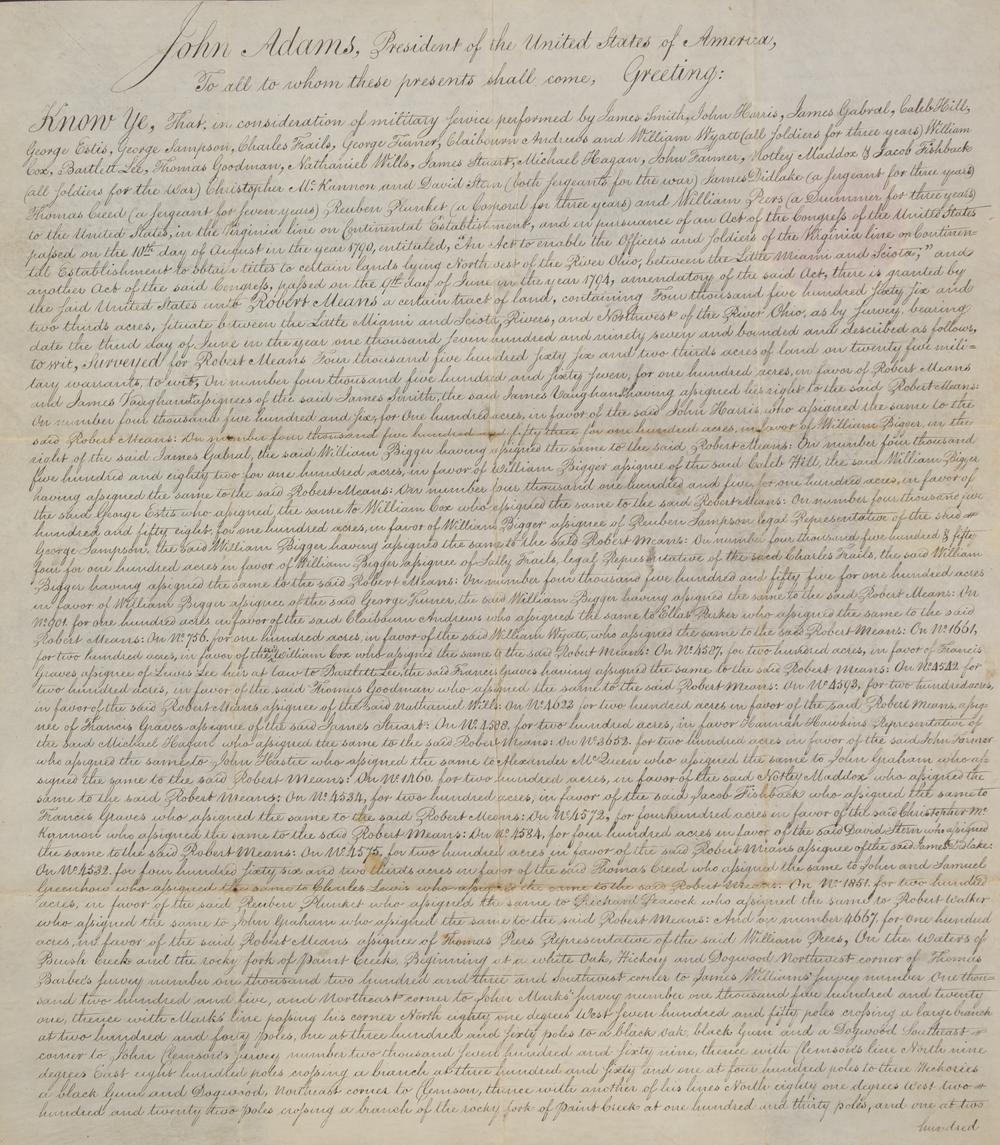 John Adams, President of the United States of America,
To all to whom these presents shall come, Greeting:
Know Ye, That, in consideration of military service performed by James Smith, John Harris, James Gabral, Caleb Hill,
George Estis, George Sampson, Charles Frails, George Turner, Claibourn Andrews and William Wyatt (all Soldiers for three years) William
Cox, Bartlett Lee, Thomas Goodman, Nathaniel Wills, James Stuart, Michael Hagan, John Farmer, Notley Maddox & Jacob Fishback
(all Soldiers for the War) Christopher McKunnon and David Stem (both Sergeants for the war) James Didlake (a Sergeant for three years)
Thomas Creed (a Sergeant for Seven years) Reuben Plunket (a Corporal for three years) and William Peers (a Drummer for three years)
to the United States, in the Virginia line on Continental Establishment, and in pursuance of an Act of the Congress of the United States
passed on the 10th day of August in the year 1790, entituled, "An Act to enable the Officers and Soldiers of the Virginia line on Continen-
tal Establishment to obtain titles to certain lands lying North west of the River Ohio, between the Little Miami and Sciota;" and
another Act of the said Congress, passed on the 9th day of June in the year 1794, amendatory of the said Act, there is granted by
the said United States unto Robert Means a certain tract of land, containing Four thousand five hundred Sixty six and
two thirds acres, situate between the Little Miami and Sciota Rivers, and Northwest of the River Ohio, as by Survey, bearing
date the third day of June in the year one thousand Seven hundred and ninety seven and bounded and described as follows,
to wit, Surveyed for Robert Means Four thousand five hundred sixty six and two thirds acres of land on twenty five mili-
tary warrants, to wit, On number four thousand five hundred and sixty seven, for one hundred acres, in favor of Robert Means
and James Vaughan assignees of the said James Smith, the said James Vaughan having assigned his right to the said Robert Means:
On number four thousand five hundred and six, for One hundred acres, in favor of the said John Harris who assigned the same to the
said Robert Means: On number four thousand five hundred and fifty three for one hundred acres, in favor of William Bigger, in the
right of the said James Gabral, the said William Bigger having assigned the same to the said Robert Means: On number four thousand
five hundred and eighty two for one hundred acres, in favor of William Bigger assignee of the said Caleb Hill, the said William Bigger
having assigned the same to the said Robert Means: On number four thousand one hundred and five, for one hundred acres, in favor of
the said George Estis who assigned the same to William Cox who assigned the same to the said Robert Means: On number four thousand five
hundred and fifty eight, for one hundred acres, in favor of William Bigger assignee of Reuben Sampson legal Representative of the said
George Sampson, the said William Bigger having assigned the same to the said Robert Means: On number four thousand five hundred & fifty
four for one hundred acres in favor of William Bigger assignee of Sally Frails, legal Representative of the said Charles Frails, the said William
Bigger having assigned the same to the said Robert Means: On number four thousand five hundred and fifty five for one hundred acres
in favor of William Bigger assignee of the said George Turner, the said William Bigger having assigned the same to the said Robert Means: On
No. 901. for one hundred acres in favor of the said Claibourn Andrews who assigned the same to Elias Parker who assigned the same to the said
Robert Means: On No. 756. for one hundred acres, in favor of the said William Wyatt, who assigned the same to the said Robert Means: On No. 1661,
for two hundred acres, in favor of the said William Cox who assigned the same to the said Robert Means: On No. 4587, for two hundred acres, in favor of Francis
Graves assignee of Lewis Lee heir at law to Bartlett Lee, the said Francis Graves having assigned the same to the said Robert Means: On No. 4542 for
two hundred acres, in favor of the said Thomas Goodman who assigned the same to the said Robert Means: On No. 4593, for two hundred acres,
in favor of the said Robert Means assignee of the said Nathaniel Wills: On No. 4622 for two hundred acres in favor of the said Robert Means, assig-
nee of Francis Graves assignee of the said James Stuart: On No. 4588, for two hundred acres, in favor Hannah Hawkins Representative of
the said Michael Hagan who assigned the same to the said Robert Means: On No. 3652. for two hundred acres in favor of the said John Farmer
who assigned the same to John Hastie who assigned the same to Alexander McQueen who assigned the same to John Graham who as-
signed the same to the said Robert Means: On No. 1460, for two hundred acres, in favor of the said Notley Maddox who assigned the
same to the said Robert Means: On No. 4534, for two hundred acres, in favor of the said Jacob Fishback who assigned the same to
Francis Graves who assigned the same to the said Robert Means: On No. 4572, for four hundred acres in favor of the said Christopher Mc
Kunnon who assigned the same to the said Robert Means: On No. 4584, for four hundred acres in favor of the said David Stem who assigned
the same to the said Robert Means: On No. 4575, for two hundred acres in favor of the said Robert Means assignee of the said James Didlake:
On No. 4532. for four hundred sixty six and two thirds acres in favor of the said Thomas Creed who assigned the same to John and Samuel
Greenhow who assigned the same to Charles Lewis who assigned the same to the said Robert Means: On No. 1851. for two hundred
acres, in favor of the said Reuben Plunket who assigned the same to Richard Peacock who assigned the same to Robert Walker
who assigned the same to John Graham who assigned the same to the said Robert Means: And on number 4667, for one hundred
acres, in favor of the said Robert Means assignee of Thomas Peers Representative of the said William Peers, On the waters of
Brush Creek and the rocky fork of Paint Creek, Beginning at a white Oak, Hickory and Dogwood Northwest corner of Thomas
Barbe's survey number one thousand two hundred and three and Southwest corner to James Williams' Survey number One thou-
sand two hundred and five, and Northeast corner to John Marks' Survey number one thousand five hundred and twenty
one, thence with Marks line passing his corner North eighty one degrees West Seven hundred and fifty poles crossing a large branch
at two hundred and forty poles, one at three hundred and sixty poles to a black Oak, black Gum and a Dogwood Southeast
corner to John Clemson's Survey number two thousand Seven hundred and sixty nine, thence with Clemson's line North nine
degrees East eight hundred poles crossing a branch at three hundred and sixty and one at four hundred poles to three Hickories
a black Gum and Dogwood, Northeast corner to Clemson, thence with another of his lines North eighty one degrees West two
hundred and twenty two poles crossing a branch of the rocky fork of Paint Creek at one hundred and thirty poles, and one at two
hundred